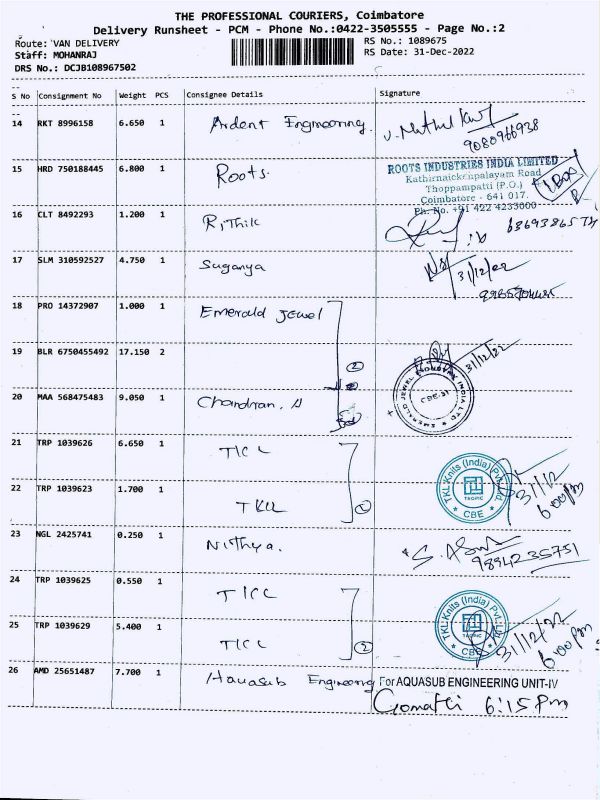 THE PROFESSIONAL COURIERS, Coimbatore
Delivery Runsheet - PCM - Phone No.:0422-3505555 - Page No.:2
Route: VAN DELIVERY
RS No.: 1089675
Staff: MOHANRAJ
RS Date: 31-Dec-2022
DRS No.: DCJB108967502
S No Consignment No Weight PCS Consignee Details Signature
14 RKT 8996158 6.650 1 Ardent Engineering
9080966938
15 HRD 750188445 6.800 1 Roots.
ROOTS INDUSTRIES INDIA LIMITED
Kathirnaickenpalayam Road
Thoppampatti (P.O.)
Coimbatore - 641 017.
Ph. No. +91 422 4233000
1 Box
16 CLT 8492293 1.200 1 Rithik
17 SLM 310592527 4.750 1 Suganya
31/12/22
18 PRO 14372907 1.000 1 Emerald Jewel
19 BLR 6750455492 17.150 2
2
31/12/22
EMERALD JEWEL INDUSTRY INDIA LTD
CBE-31
20 MAA 568475483 9.050 1 Chandran. A
21 TRP 1039626 6.650 1 TICL
TKL Knits (India) Pvt. Ltd.
TROPIC
CBE
31/12
6:00pm
22 TRP 1039623 1.700 1 TKLL
2
23 NGL 2425741 0.250 1 Nithya.
9894235751
24 TRP 1039625 0.550 1 TICL
25 TRP 1039629 5.400 1 TICL
2
TKL Knits (India) Pvt. Ltd.
TROPIC
CBE
31/12/22
6:00pm
26 AMD 25651487 7.700 1 Hauasub Engineering
For AQUASUB ENGINEERING UNIT-IV
Gomathi 6:15 Pm